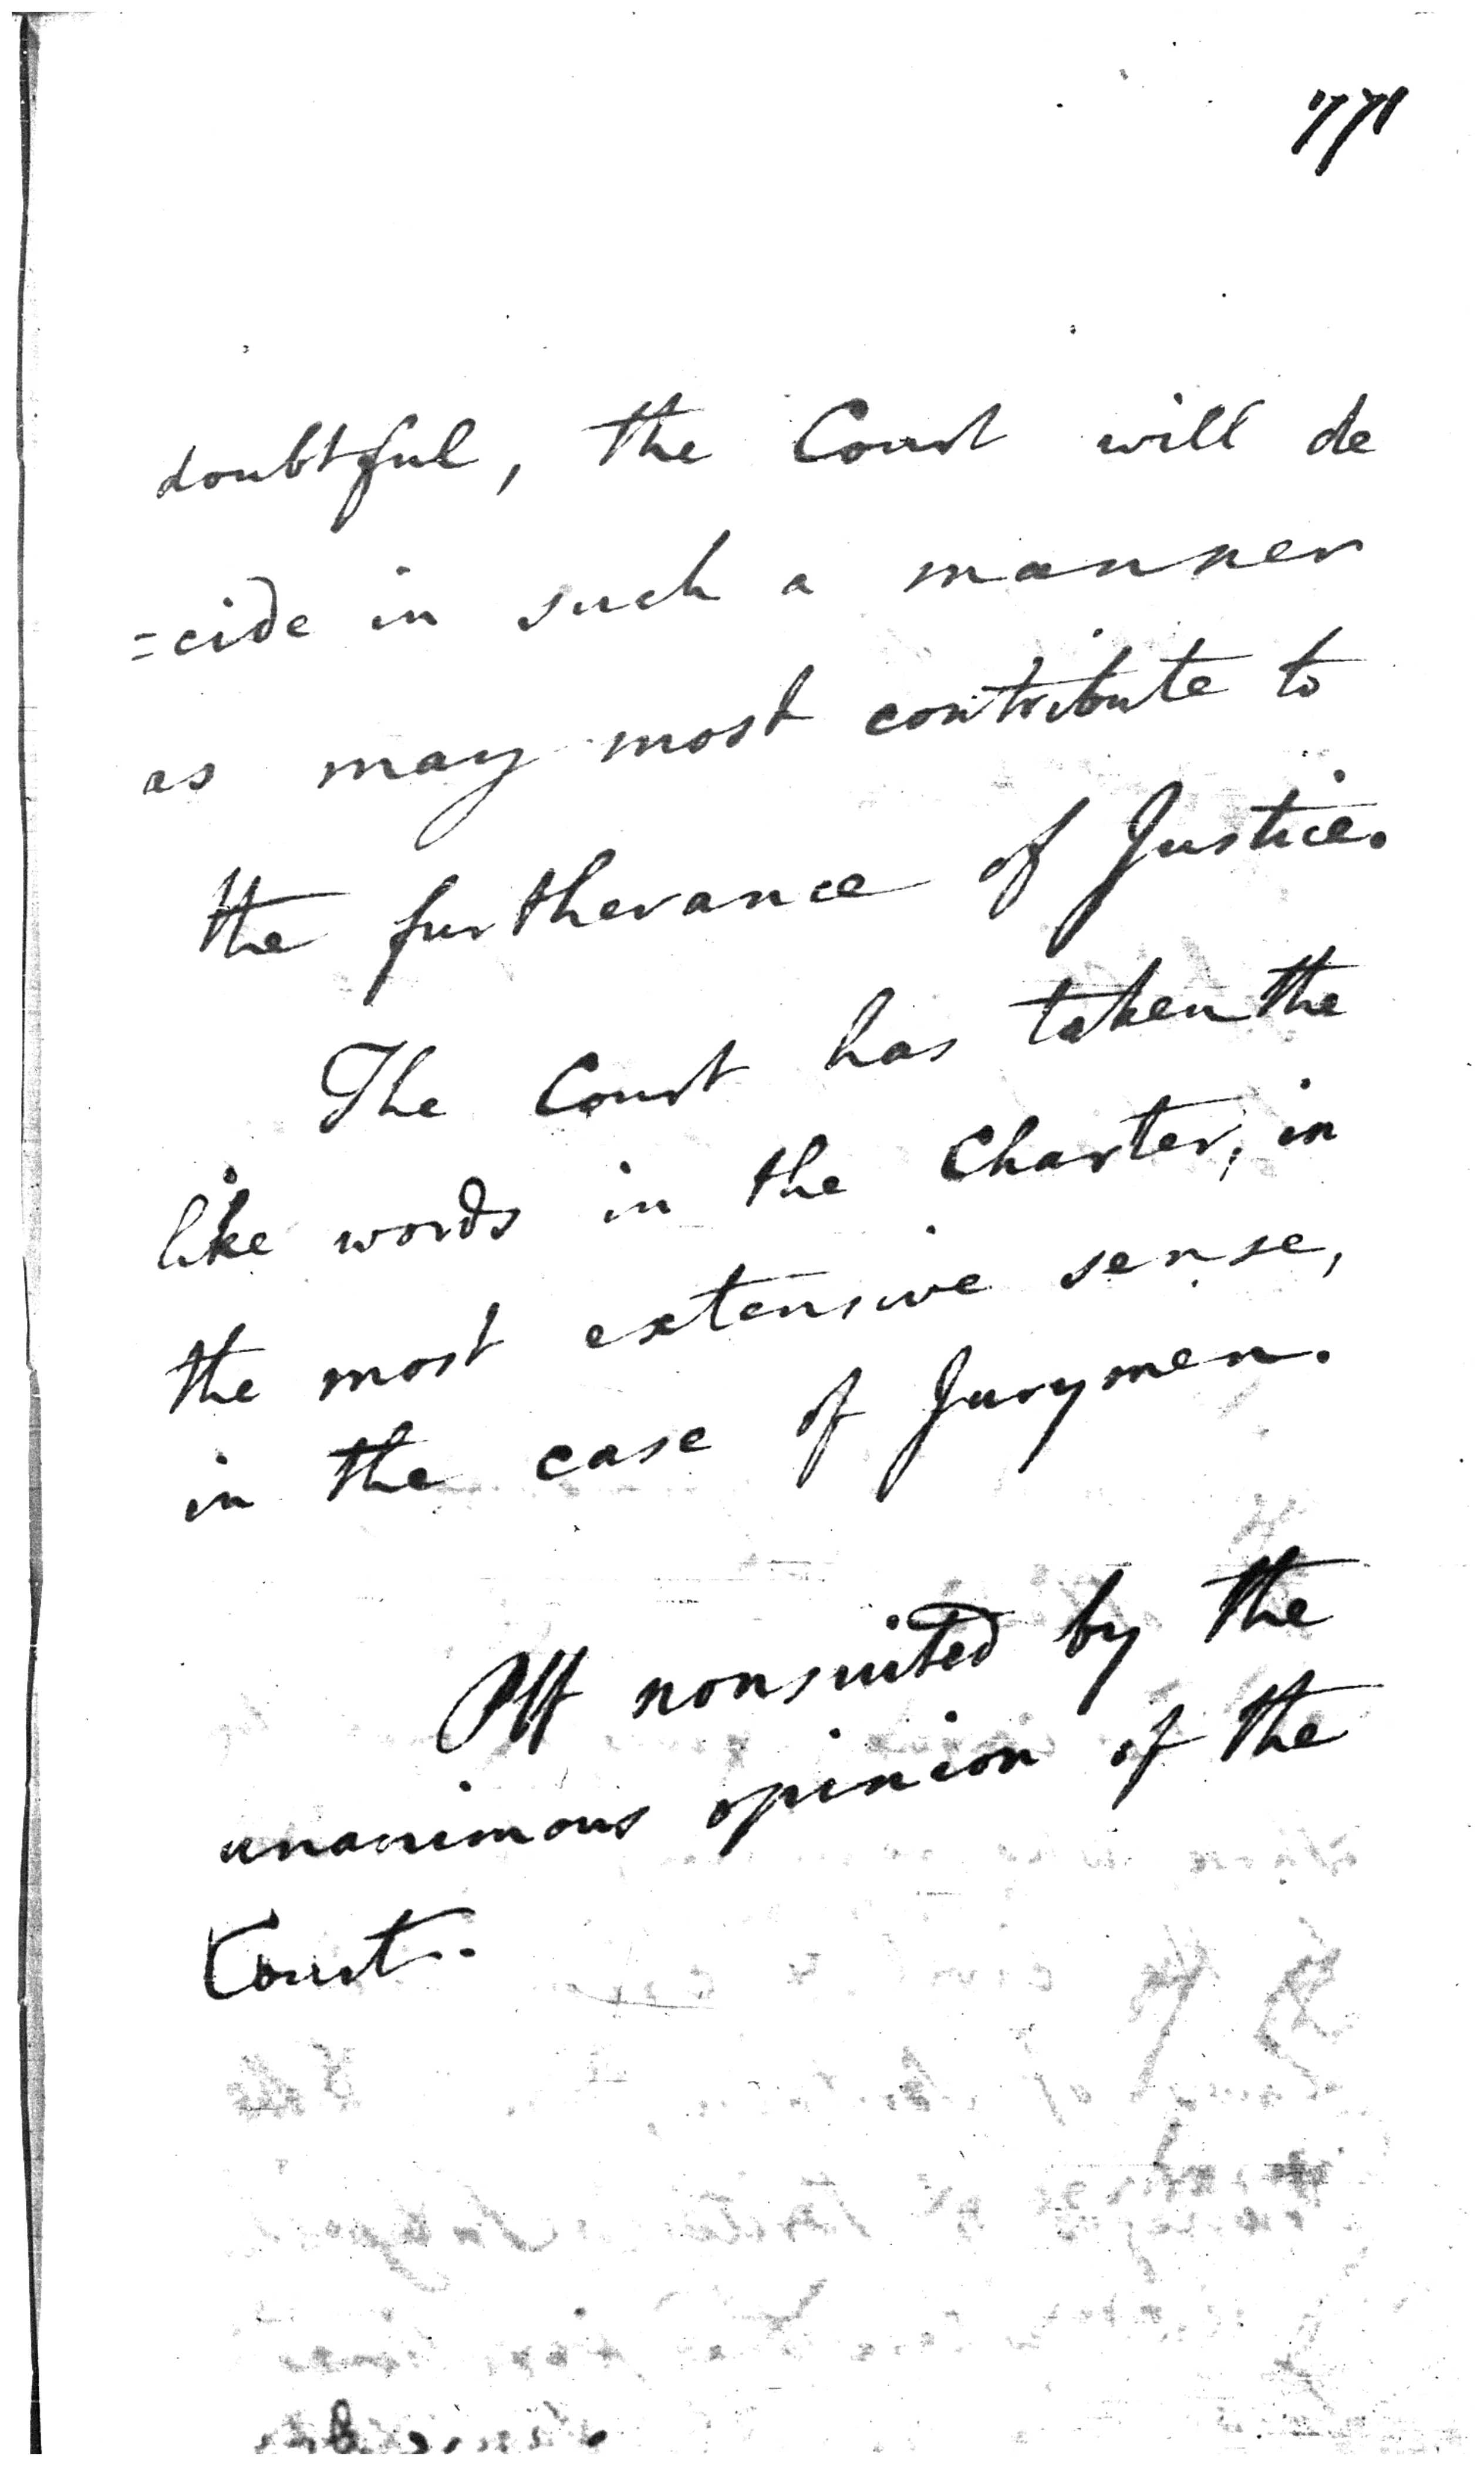 771
doubtful, the Court will de
=cide in such a manner
as may most contribute to
the furtherance of Justice.
The Court has taken the
like words in the Charter, in
the most extensive sense,
in the case of Jurymen.
Plff nonsuited by the
unanimous opinion of the
Court.